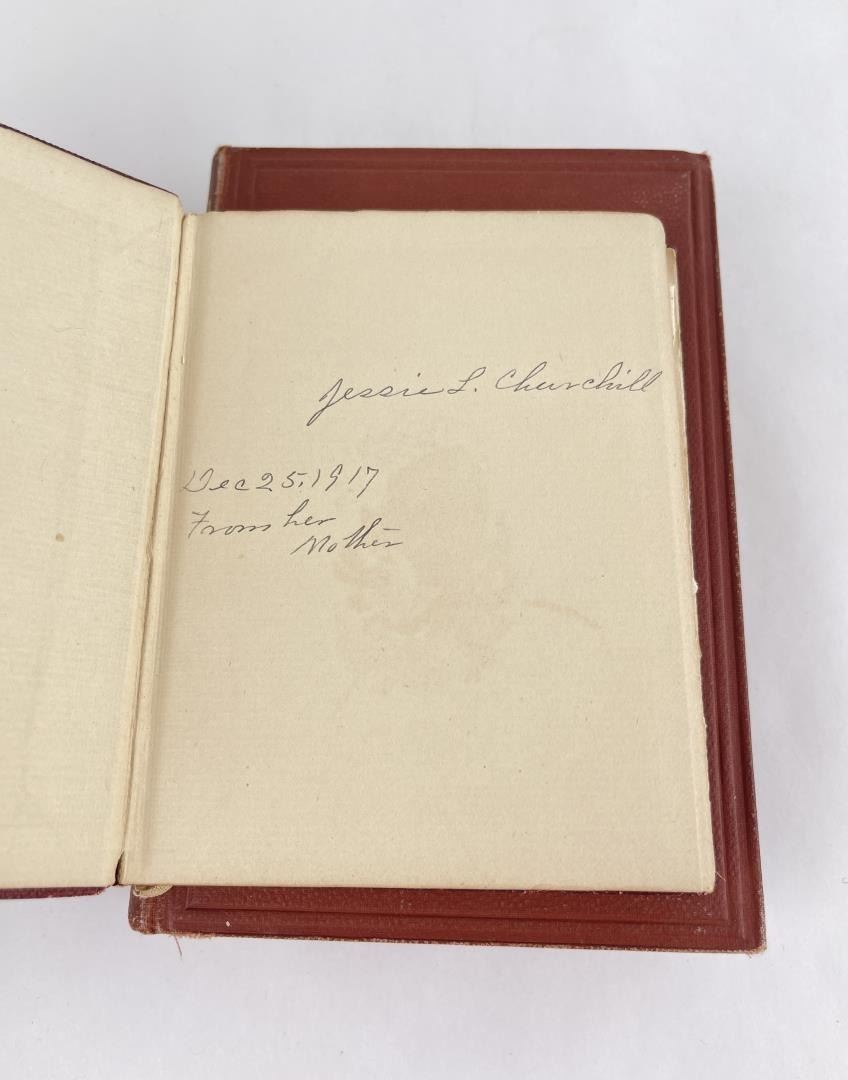 Jessie L. Churchill
Dec 25, 1917
From her
Mother